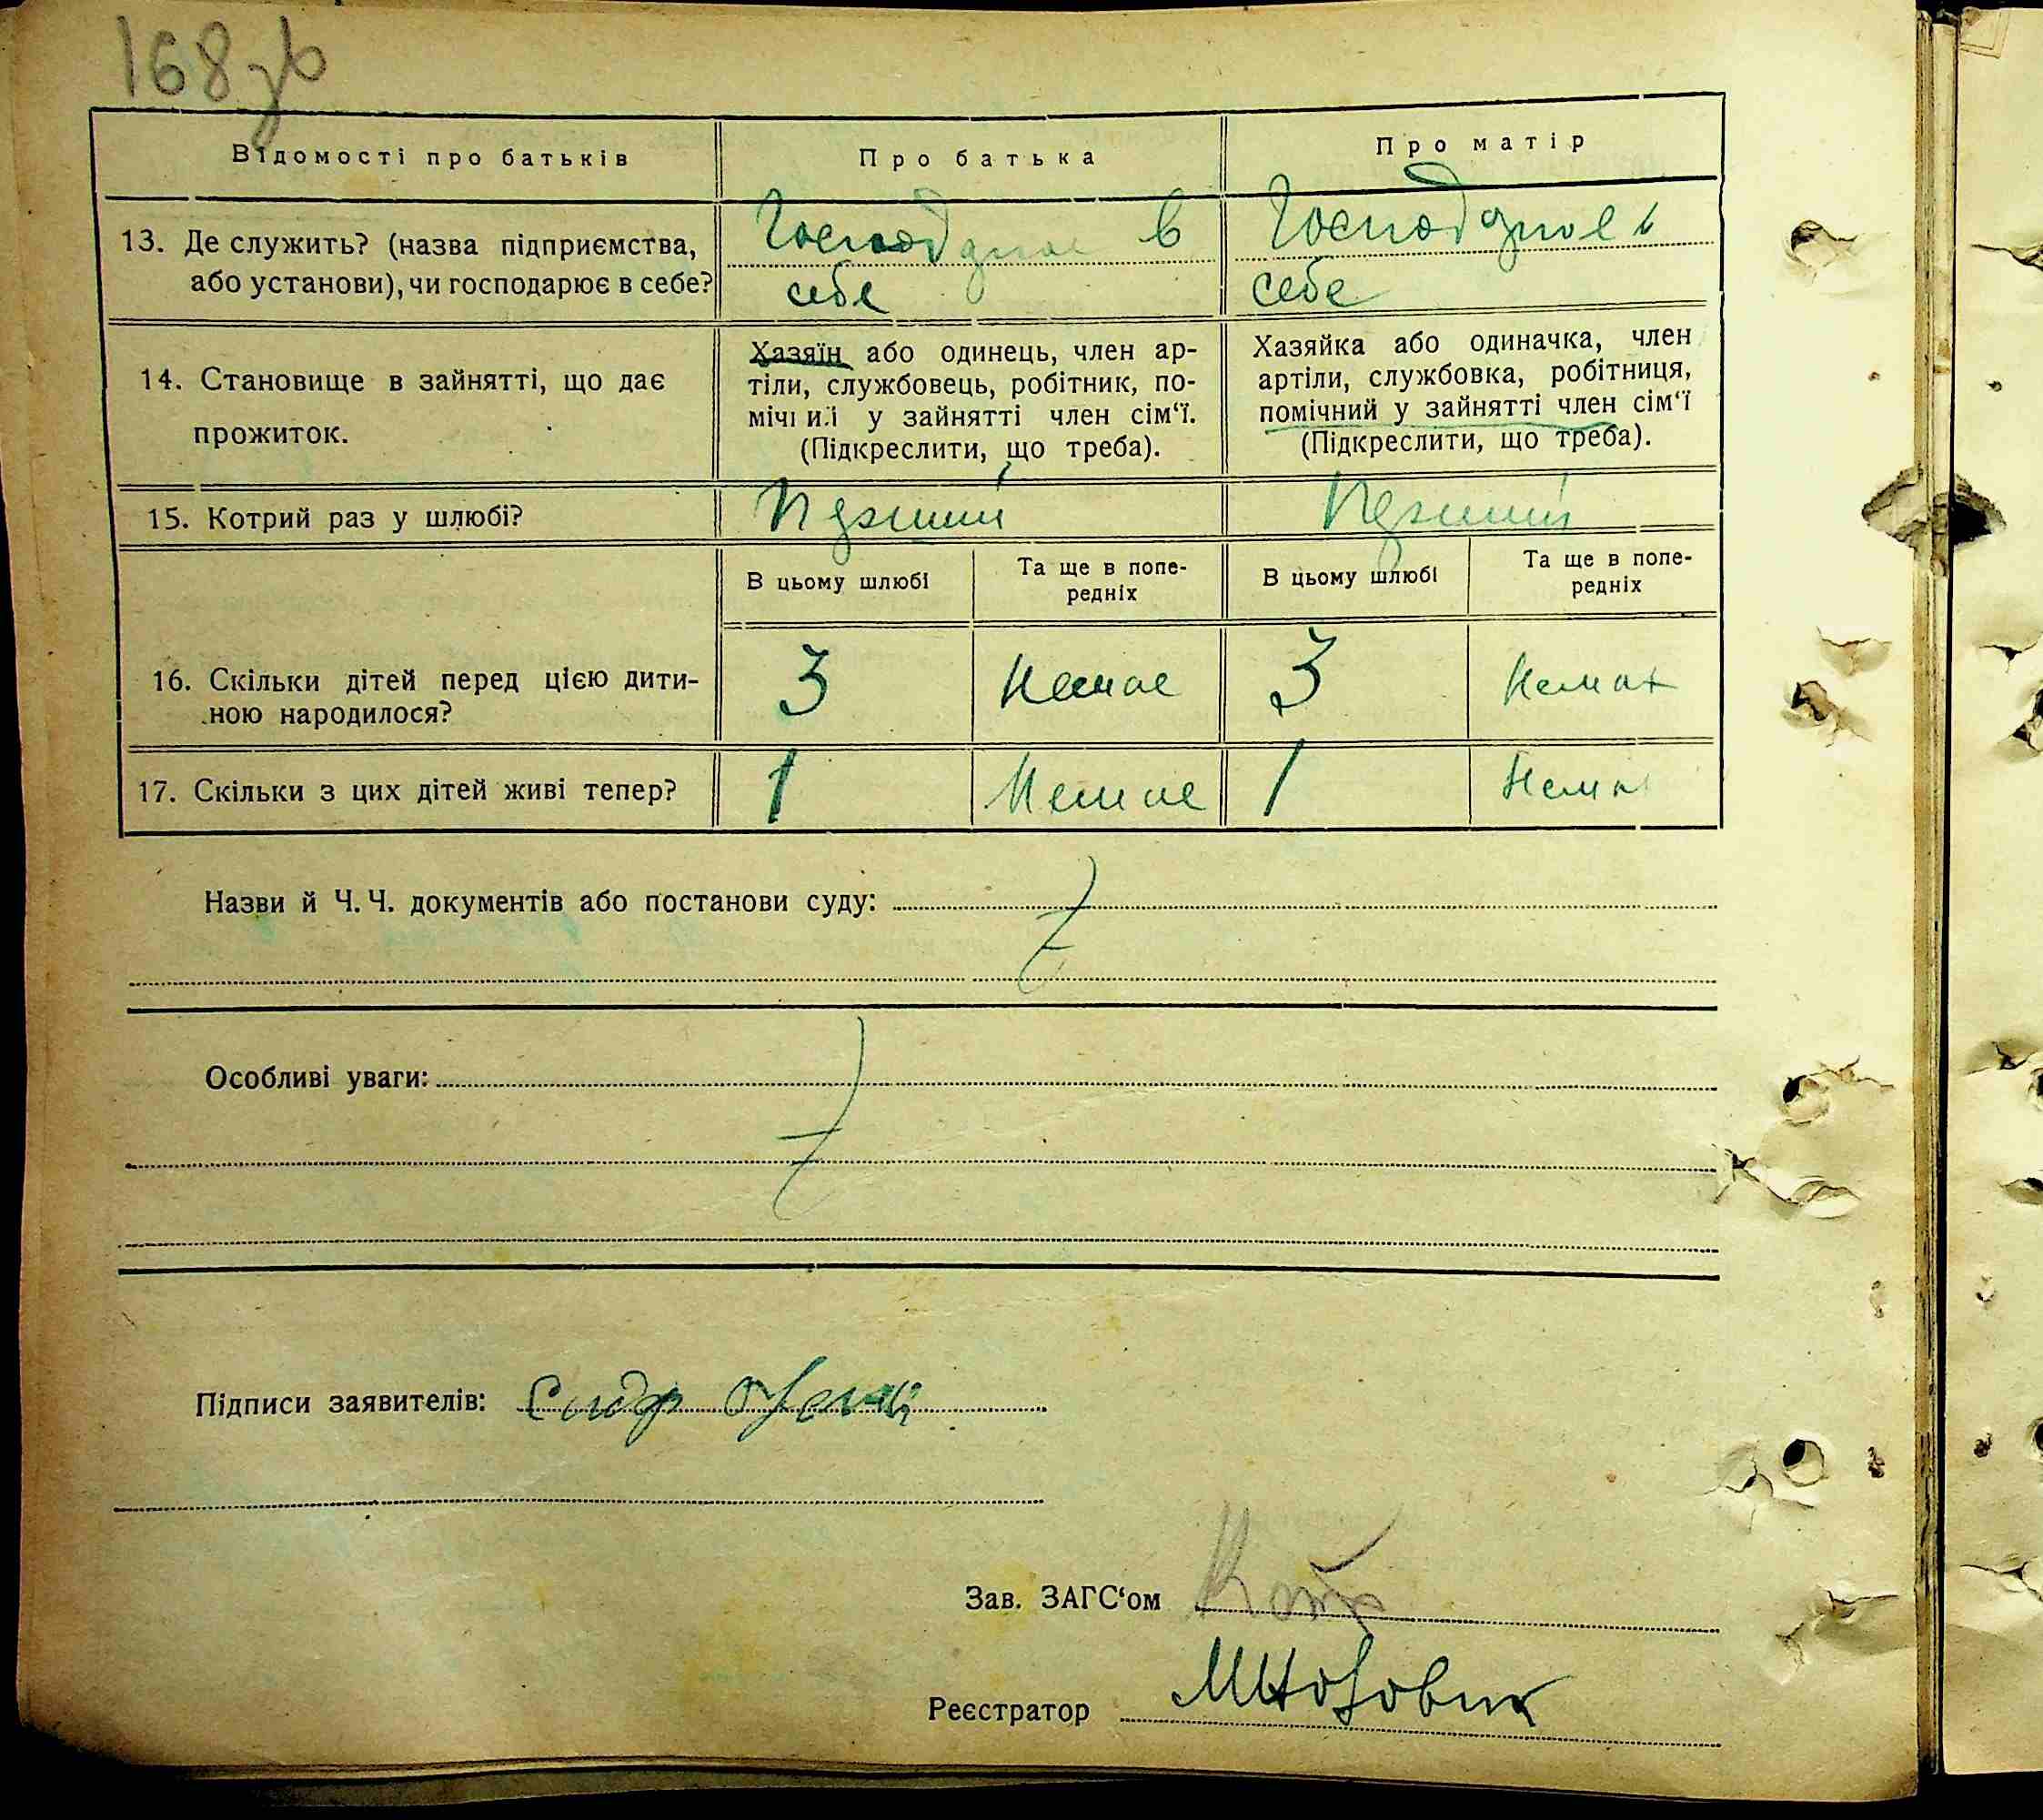 168 зв
Відомості про батьків
Про батька
Про матір
13. Де служить? (назва підприємства,
або установи), чи господарює в себе?
в
себе
себе
14. Становище в зайнятті, що дає
прожиток.
Хазяїн або одинець, член ар-
тіли, службовець, робітник, по-
мічний у зайнятті член сім‘ї.
(Підкреслити, що треба).
Хазяйка або одиначка, член
артіли, службовка, робітниця,
помічний у зайнятті член сім‘ї
(Підкреслити, що треба).
15. Котрий раз у шлюбі?
В цьому шлюбі
Та ще в попе-
редніх
В цьому шлюбі
Та ще в попе-
редніх
16. Скільки дітей перед цією дити-
ною народилося?
3
Немає
3
Немає
17. Скільки з цих дітей живі тепер?
1
Немає
1
Немає
Назви й Ч. Ч. документів або постанови суду:
Особливі уваги:
Підписи заявителів:
Зав. ЗАГС‘ом
Реєстратор